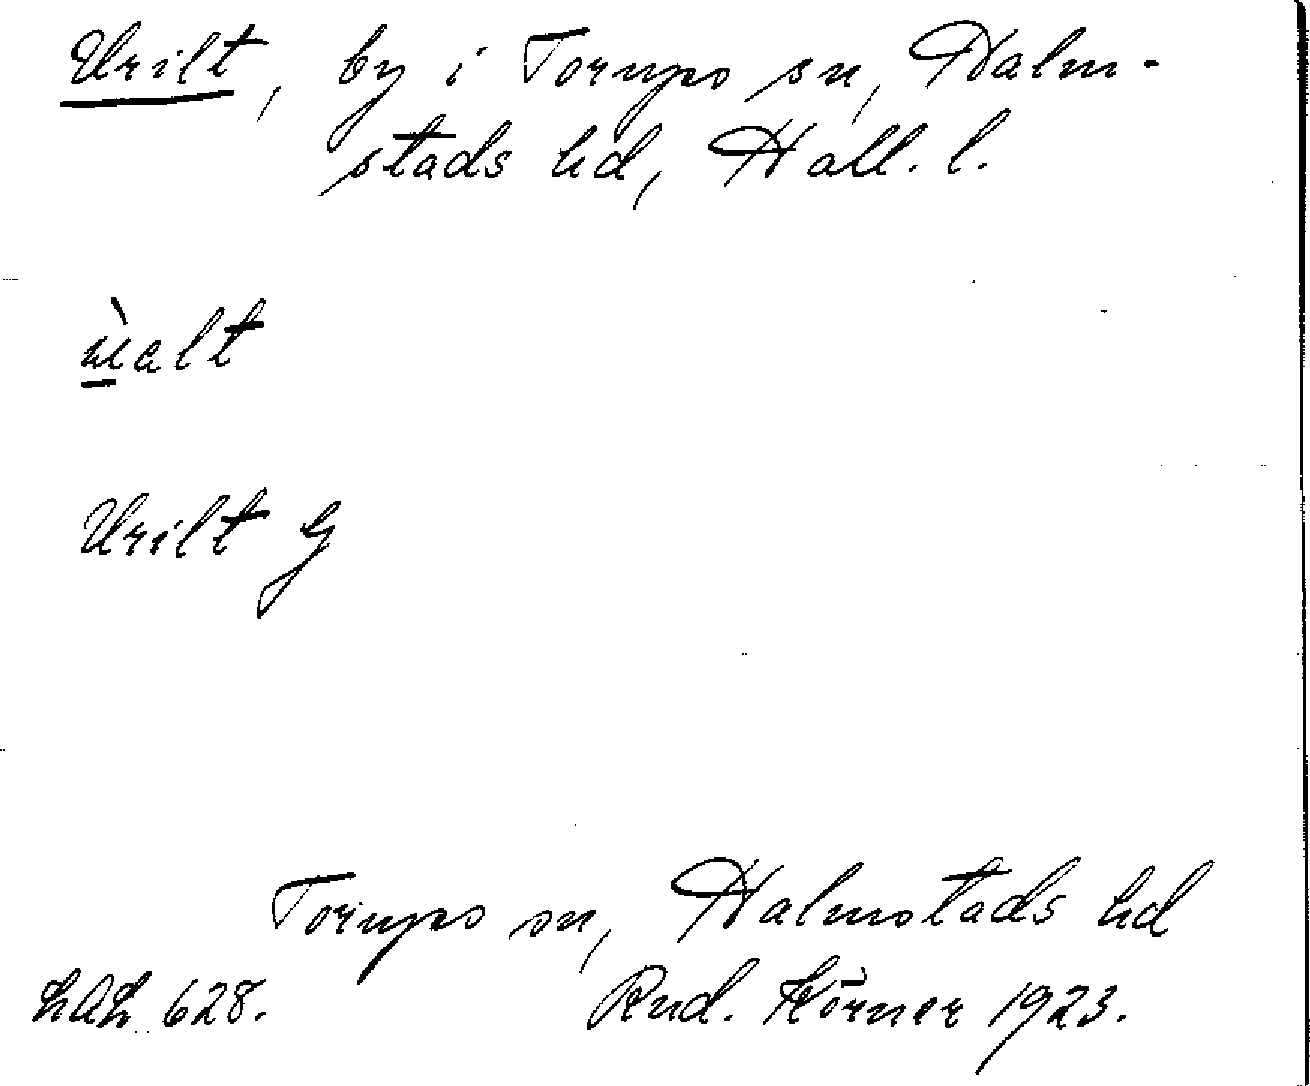 Urilt, by i Torups sn, Halm-
stads hd, Hall. l.
Urilt G
Torups sn, Halmstads hd
LAL 628. Rud. Körner 1923.